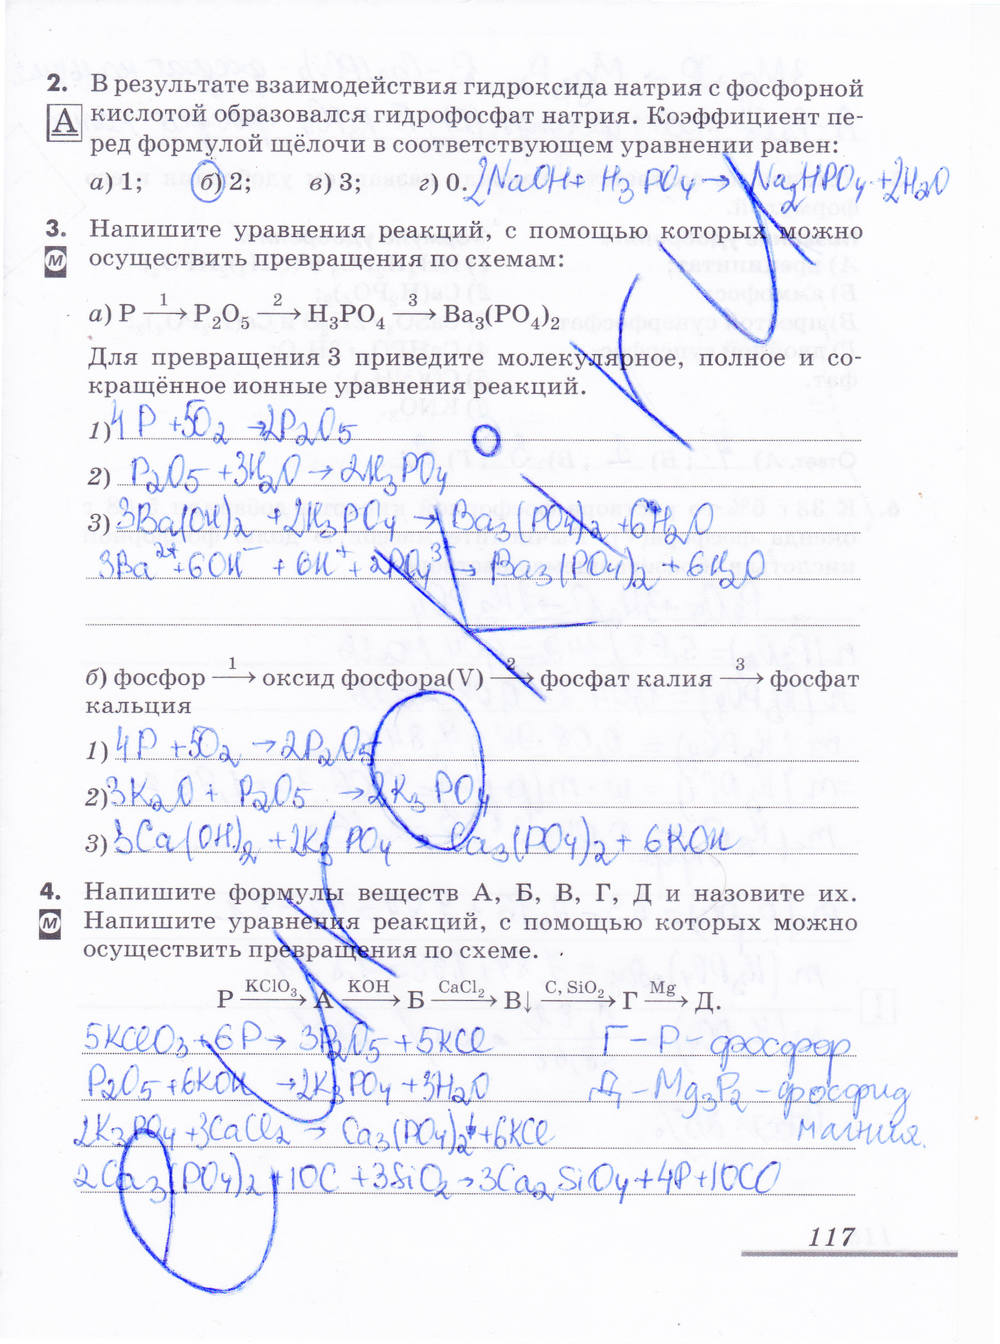 2. В результате взаимодействия гидроксида натрия с фосфорной
А кислотой образовался гидрофосфат натрия. Коэффициент пе-
ред формулой щёлочи в соответствующем уравнении равен:
а) 1; б) 2; в) 3; г) 0. 2NaOH + H₃PO₄ → Na₂HPO₄ + 2H₂O
3. Напишите уравнения реакций, с помощью которых можно
М осуществить превращения по схемам:
а) P —1→ P₂O₅ —2→ H₃PO₄ —3→ Ba₃(PO₄)₂
Для превращения 3 приведите молекулярное, полное и со-
кращённое ионные уравнения реакций.
1) 4P + 5O₂ → 2P₂O₅
2) P₂O₅ + 3H₂O → 2H₃PO₄
3) 3Ba(OH)₂ + 2H₃PO₄ → Ba₃(PO₄)₂ + 6H₂O
3Ba²⁺ + 6OH⁻ + 6H⁺ + 2PO₄³⁻ → Ba₃(PO₄)₂ + 6H₂O
б) фосфор —1→ оксид фосфора(V) —2→ фосфат калия —3→ фосфат
кальция
1) 4P + 5O₂ → 2P₂O₅
2) 3K₂O + P₂O₅ → 2K₃PO₄
3) 3Ca(OH)₂ + 2K₃PO₄ → Ca₃(PO₄)₂ + 6KOH
4. Напишите формулы веществ А, Б, В, Г, Д и назовите их.
М Напишите уравнения реакций, с помощью которых можно
осуществить превращения по схеме.
P —KClO₃→ А —KOH→ Б —CaCl₂→ В↓ —C, SiO₂→ Г —Mg→ Д.
5KClO₃ + 6P → 3P₂O₅ + 5KCl Г – P – фосфор
P₂O₅ + 6KOH → 2K₃PO₄ + 3H₂O Д – Mg₃P₂ – фосфид
2K₃PO₄ + 3CaCl₂ → Ca₃(PO₄)₂↓ + 6KCl магния.
2Ca₃(PO₄)₂ + 10C + 3SiO₂ → 3Ca₂SiO₄ + 4P + 10CO
117